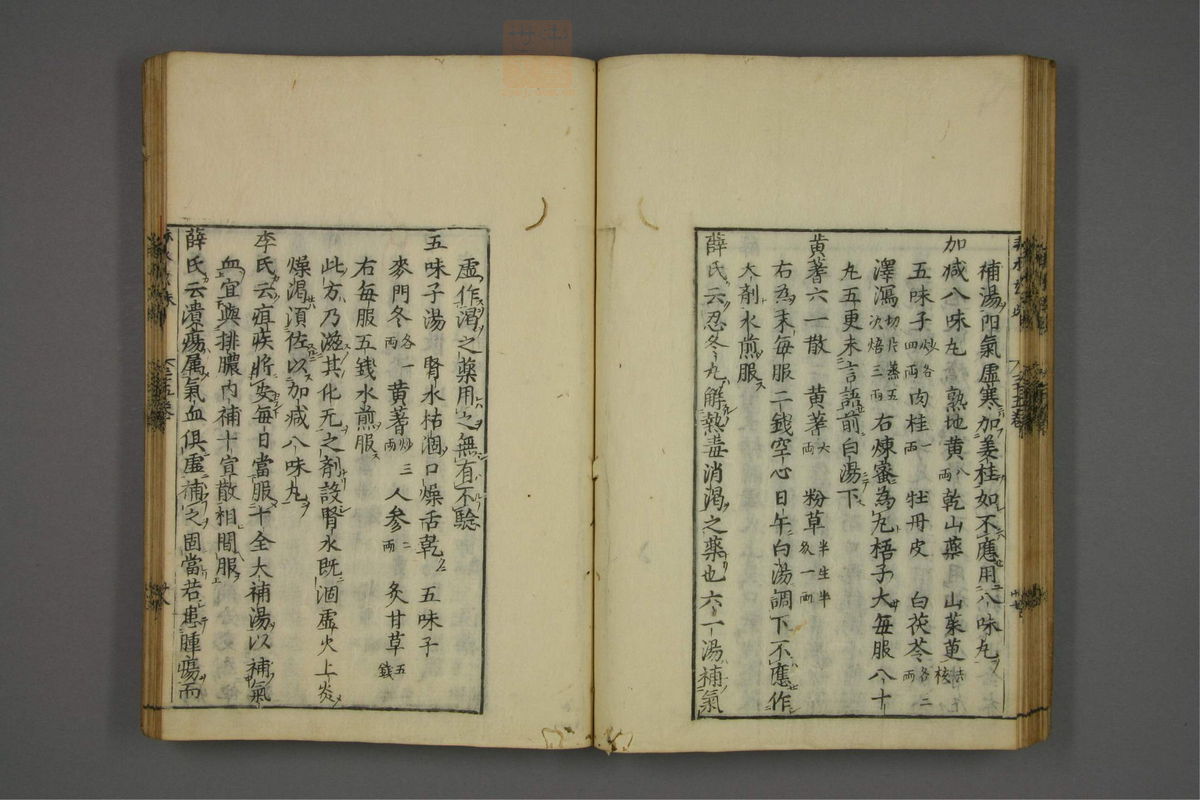 補湯陽氣虛寒加姜桂如不應用八味丸
加减八味丸 熟地黄八両 乾山藥 山茱萸去核
五味子炒各四両 肉桂一両 牡丹皮 白茯苓各二両
澤瀉切片蒸五次焙三両 右煉蜜為丸梧子大每服八十
丸五更未言語前白湯下
黄蓍六一散 黄蓍六両 粉草半生半炙一両
右為末每服二錢空心日午白湯調下不應作
大剤水煎服
薛氏云忍冬丸解熱毒消渴之藥也六一湯補氣
虛作渴之藥用之無有不驗
五味子湯 腎水枯涸口燥舌乾 五味子
麥門冬各一両 黄蓍炒三両 人参二両 炙甘草五錢
右每服五錢水煎服
此方乃滋其化元之剤設腎水既涸虛火上炎
燥渴湏佐以加减八味丸
李氏云疽疾將安每日當服十全大補湯以補氣
血宜與排膿内補十宣散相間服
薛氏云潰瘍属氣血俱虛補之固當若患腫瘍而